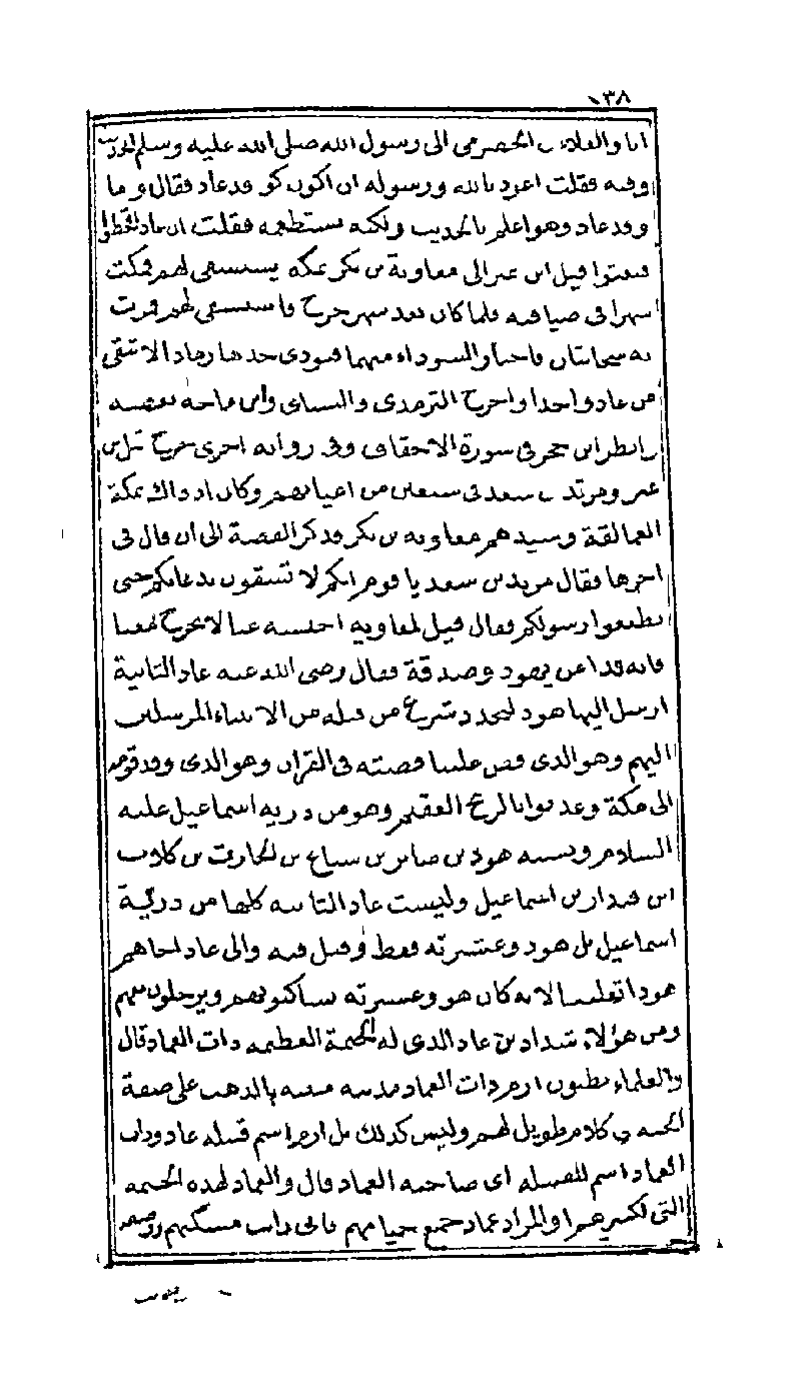 ١٣٨
انا والعلاء بن الحضرمي الى رسول الله صلى الله عليه وسلم الحديث
وفيه فقلت اعوذ بالله ورسوله ان اكون كوفد عاد فقال وما
وفد عاد وهو اعلم بالحديث ولكنه يستطعمه فقلت ان عاد اقحطوا
فبعثوا قيل ابن عنز الى معاوية بن بكر بمكة يستسقي لهم فمكث
شهرا في ضيافته فلما كان بعد شهر خرج فاستسقى لهم فمرت
به سحابتان فاختار السوداء منهما فنودي خذها رمادا لا تبقي
من عاد واحدا واخرج الترمذي والنسائي وابن ماجه بعضه
انظر ابن حجر في سورة الاحقاف وفي رواية اخرى خرج قيل بن
عنز ومرثد بن سعد في سبعين من اعيانهم وكان اذ ذاك بمكة
العمالقة وسيدهم معاوية بن بكر وذكر القصة الى ان قال في
اخرها فقال مرثد بن سعد يا قوم انكم لا تسقون بدعائكم حتى
تطيعوا رسولكم فقال قيل لمعاوية احبسه عنا لا يخرج معنا
فانه قد امن بهود وصدقه فقال رضي الله عنه عاد الثانية
ارسل اليها هود لتجدد شرع من قبله من الانبياء المرسلين
اليهم وهو الذي قص علينا قصته في القران وهو الذي وفد قومه
الى مكة وعذبوا بالريح العقيم وهو من ذرية اسماعيل عليه
السلام ونسبه هود بن صابر بن سباع بن الحارث بن كلاب
ابن قيدار بن اسماعيل وليست عاد الثانية كلها من ذرية
اسماعيل بل هود وعشيرته فقط وقيل فيه والى عاد اخاهم
هودا تغليبا لانه كان هو وعشيرته ساكنونهم ويرحلون معهم
ومن هؤلاء شداد بن عاد الذي له الخيمة العظيمة ذات العماد قال
والعلماء يظنون ارم ذات العماد مدينة مبنية بالذهب على صفة
الجنة في كلام طويل لهم وليس كذلك بل ارم اسم قبيلة عاد وذات
العماد اسم للقبيلة اي صاحبة العماد قال والعماد لهذه الخيمة
التي لكبيرهم او المراد عماد جميع خيامهم قال مسكنهم